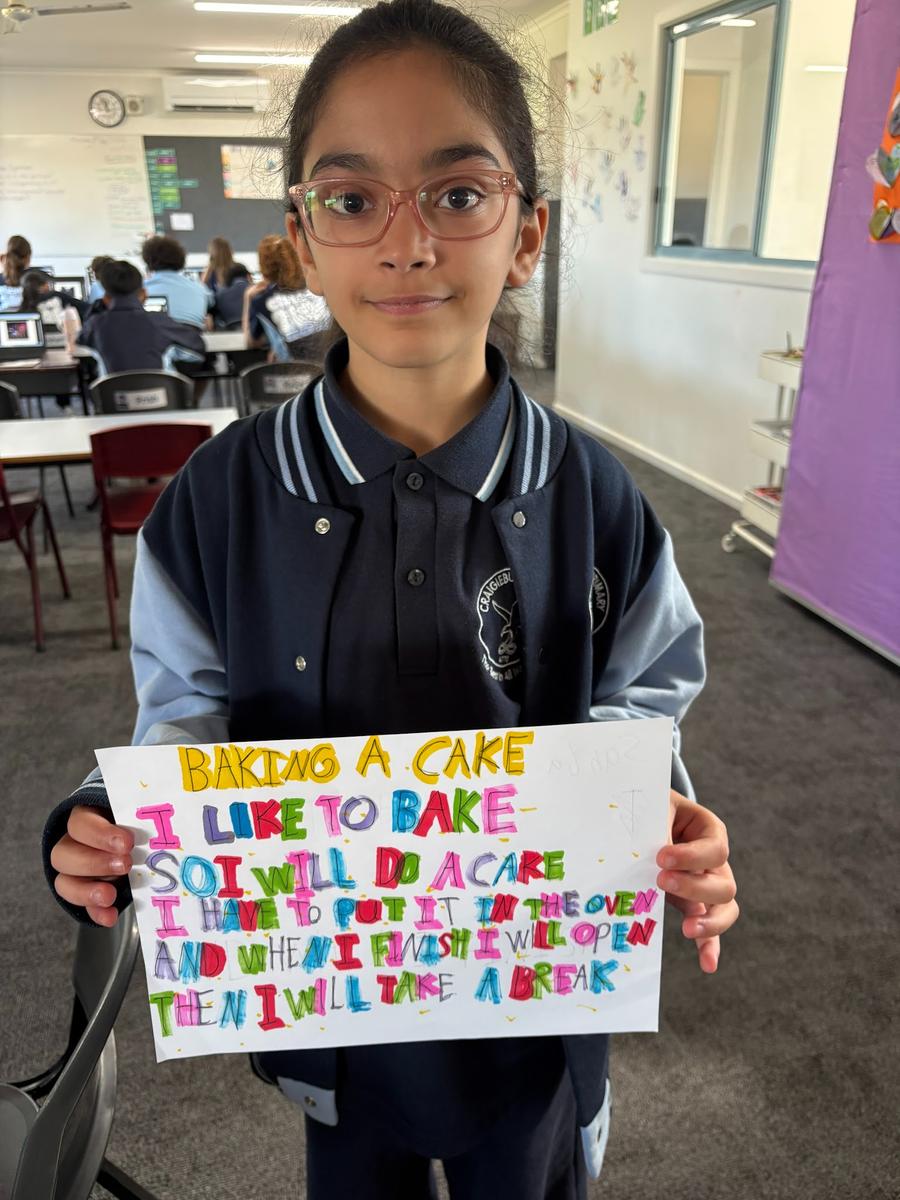 BAKING A CAKE
I LIKE TO BAKE
SO I WILL DO A CAKE
I HAVE TO PUT IT IN THE OVEN
AND WHEN I FINISH I WILL OPEN
THEN I WILL TAKE A BREAK